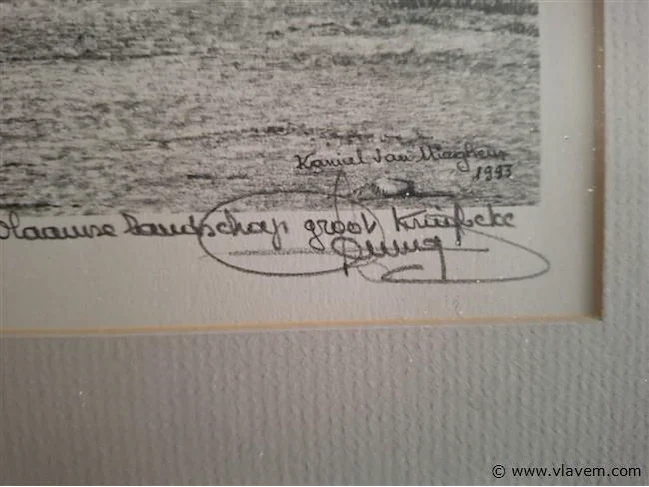 Kamiel Van Mieghem
1993
Vlaamse landschap groot Kruibeke
© www.vlavem.com